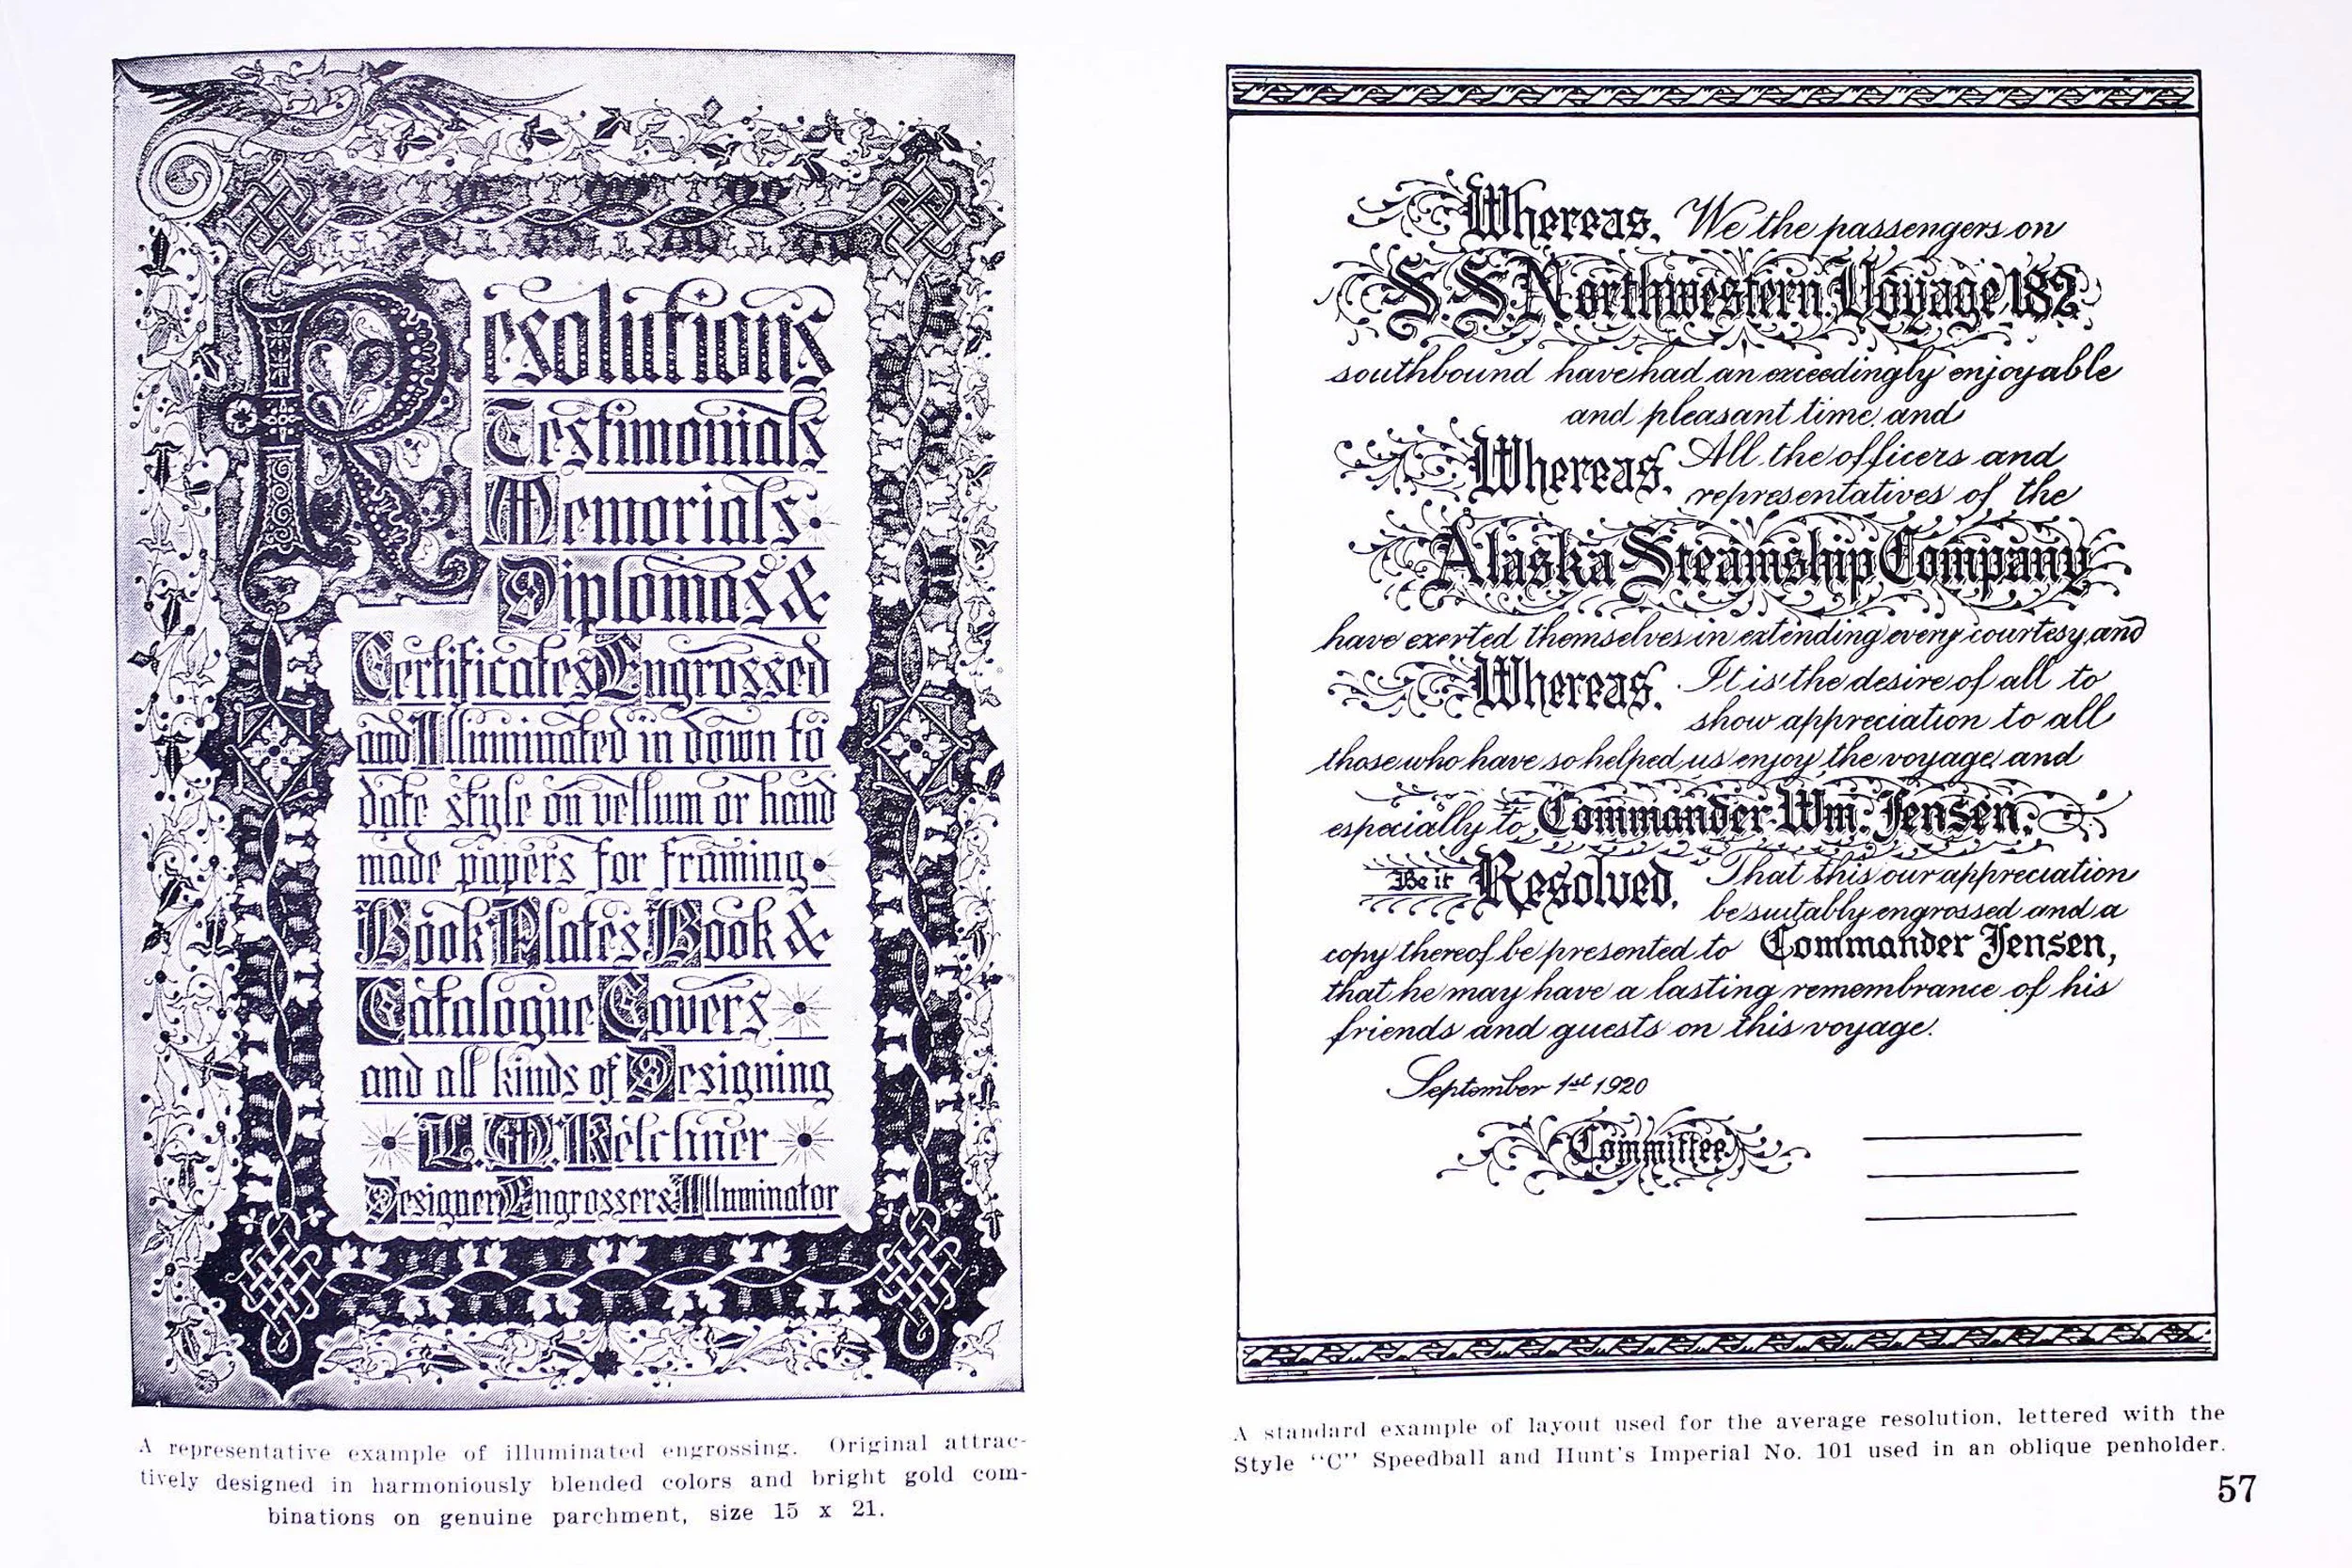 Resolutions
Testimonials
Memorials
Diplomas &
Certificates Engrossed
and Illuminated in down to
date style on vellum or hand
made papers for framing
Book Plates Book &
Catalogue Covers
and all kinds of Designing
L. M. Kelchner
Designer Engrosser & Illuminator
A representative example of illuminated engrossing. Original attrac-
tively designed in harmoniously blended colors and bright gold com-
binations on genuine parchment, size 15 x 21.
Whereas, We the passengers on
S.S. Northwestern Voyage 182
southbound have had an exceedingly enjoyable
and pleasant time, and
Whereas, All the officers and
representatives of the
Alaska Steamship Company
have exerted themselves in extending every courtesy, and
Whereas, It is the desire of all to
show appreciation to all
those who have so helped us enjoy the voyage and
especially to Commander Wm. Jensen.
Be it Resolved, That this our appreciation
be suitably engrossed and a
copy thereof be presented to Commander Jensen,
that he may have a lasting remembrance of his
friends and guests on this voyage.
September 1st 1920
Committee
A standard example of layout used for the average resolution, lettered with the
Style "C" Speedball and Hunt's Imperial No. 101 used in an oblique penholder.
57